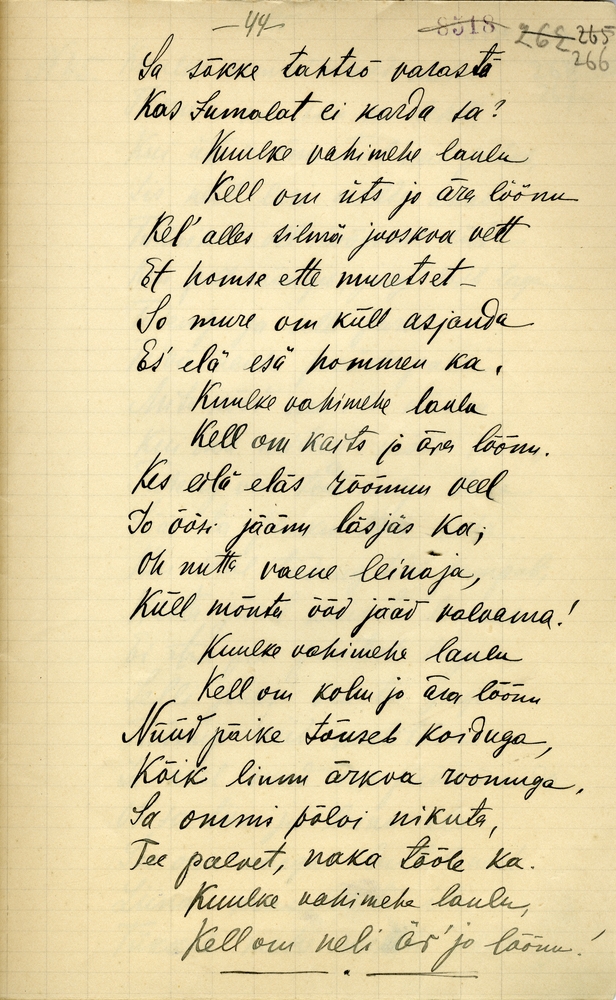 -44-
8518 262 265
266
Sa sõkke tahtsõ varastõ
Kas Jumalat ei karda sa?
Kuulke vahimehe laulu
Kell om üts jo ära löönu
Kel' alles silmä jooskva vett
Et homse ette muretset -
So mure om küll asjanda
Es' elä esä hommen ka.
Kuulke vahimehe laulu
Kell om kaits jo ära löönu.
Kes eilä eläs röömun veel
Jo öösi jäänu läsjäs ka;
Oh nutta vaene leinaja,
Küll mõnta ööd jääd valvama!
Kuulke vahimehe laulu
Kell om kolm jo ära löönu
Nüüd päike tõuseb koiduga,
Kõik linnu ärkva roomuga,
Sa ommi põlvi nikuta,
Tee palvet, naka tööle ka.
Kuulke vahimehe laulu,
Kell om neli är' jo löönu!